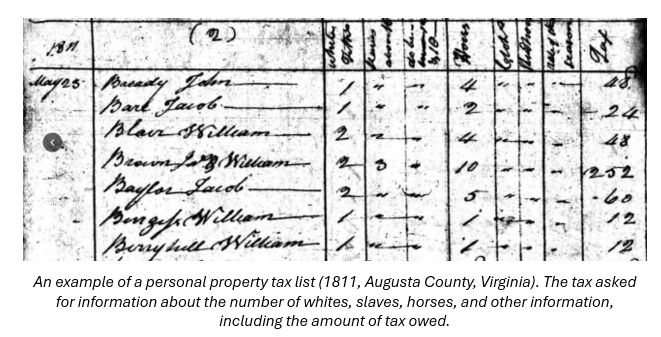 1811 (2) Horses Tax
May 25 Bready John 1 " " 4 " " " 48
Bare Jacob 1 " " 2 " " " 24
Blair William 2 " " 4 " " " 48
Brown William 2 3 " 10 " " " 2 52
Baylor Jacob 2 " " 5 " " " 60
Burgess William 1 " " 1 " " " 12
Berryhill William 1 " " 1 " " " 12
An example of a personal property tax list (1811, Augusta County, Virginia). The tax asked
for information about the number of whites, slaves, horses, and other information,
including the amount of tax owed.